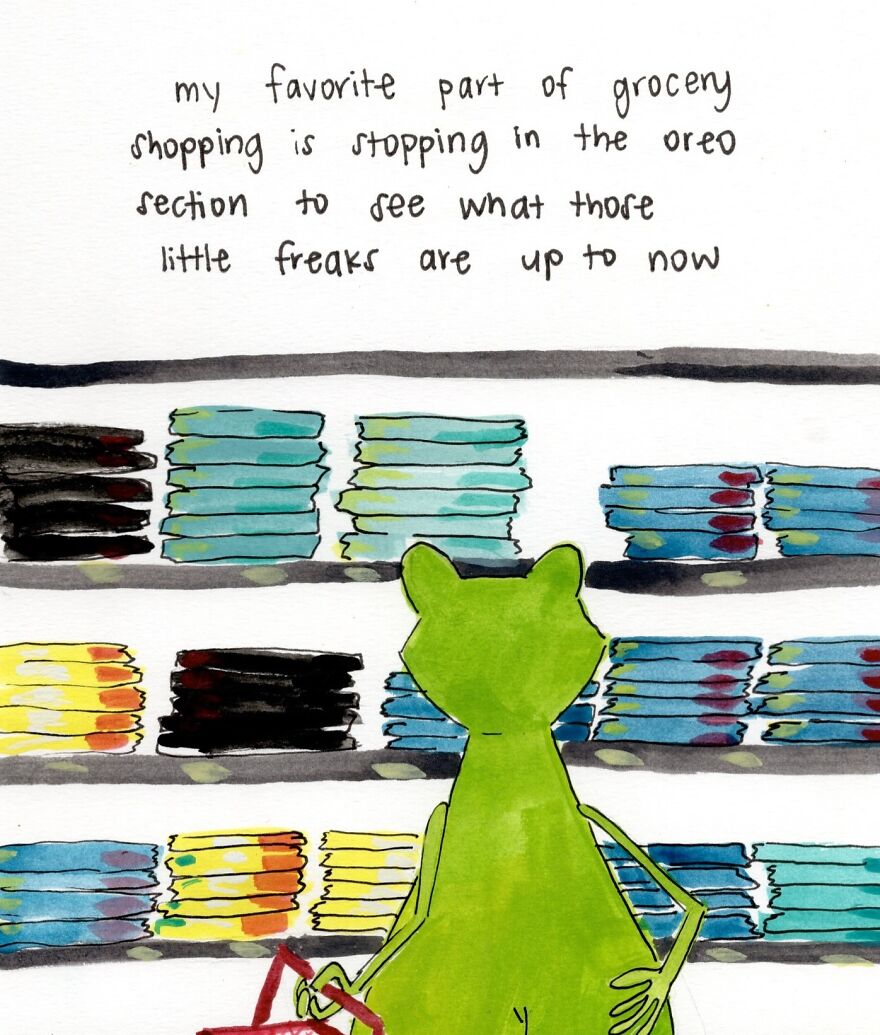 my favorite part of grocery
shopping is stopping in the oreo
section to see what those
little freaks are up to now